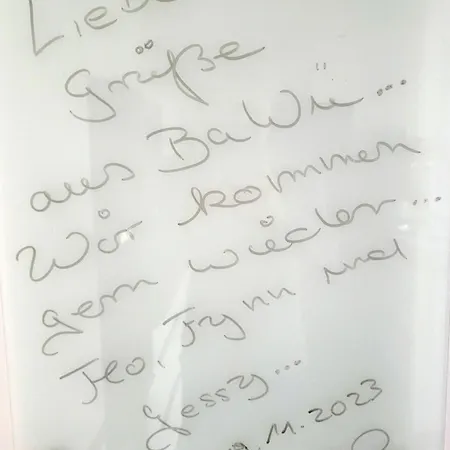 Liebe
Grüße
aus BaWü...
Wir kommen
gern wieder...
Flo, Fynn und
Gessy...
.11.2023